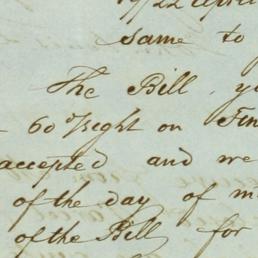 same to
The Bill, yo
60 d/sight on Fin
accepted and we
of the day of m
of the Bill for